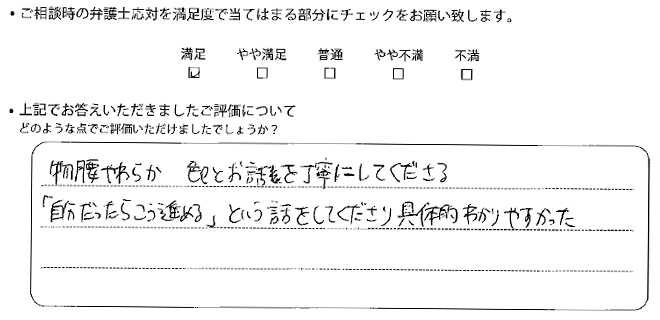 ・ご相談時の弁護士応対を満足度で当てはまる部分にチェックをお願い致します。
満足 やや満足 普通 やや不満 不満
・上記でお答えいただきましたご評価について
どのような点でご評価いただけましたでしょうか？
物腰やわらか 色々とお話を丁寧にしてくださる
「自分だったらこう進める」という話をしてくださり具体的わかりやすかった